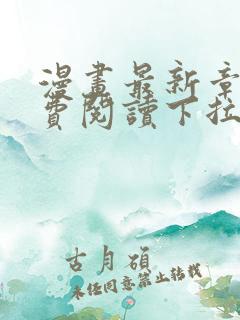 漫畫最新章
費閱讀下拉
古月碩
未經同意禁止轉載